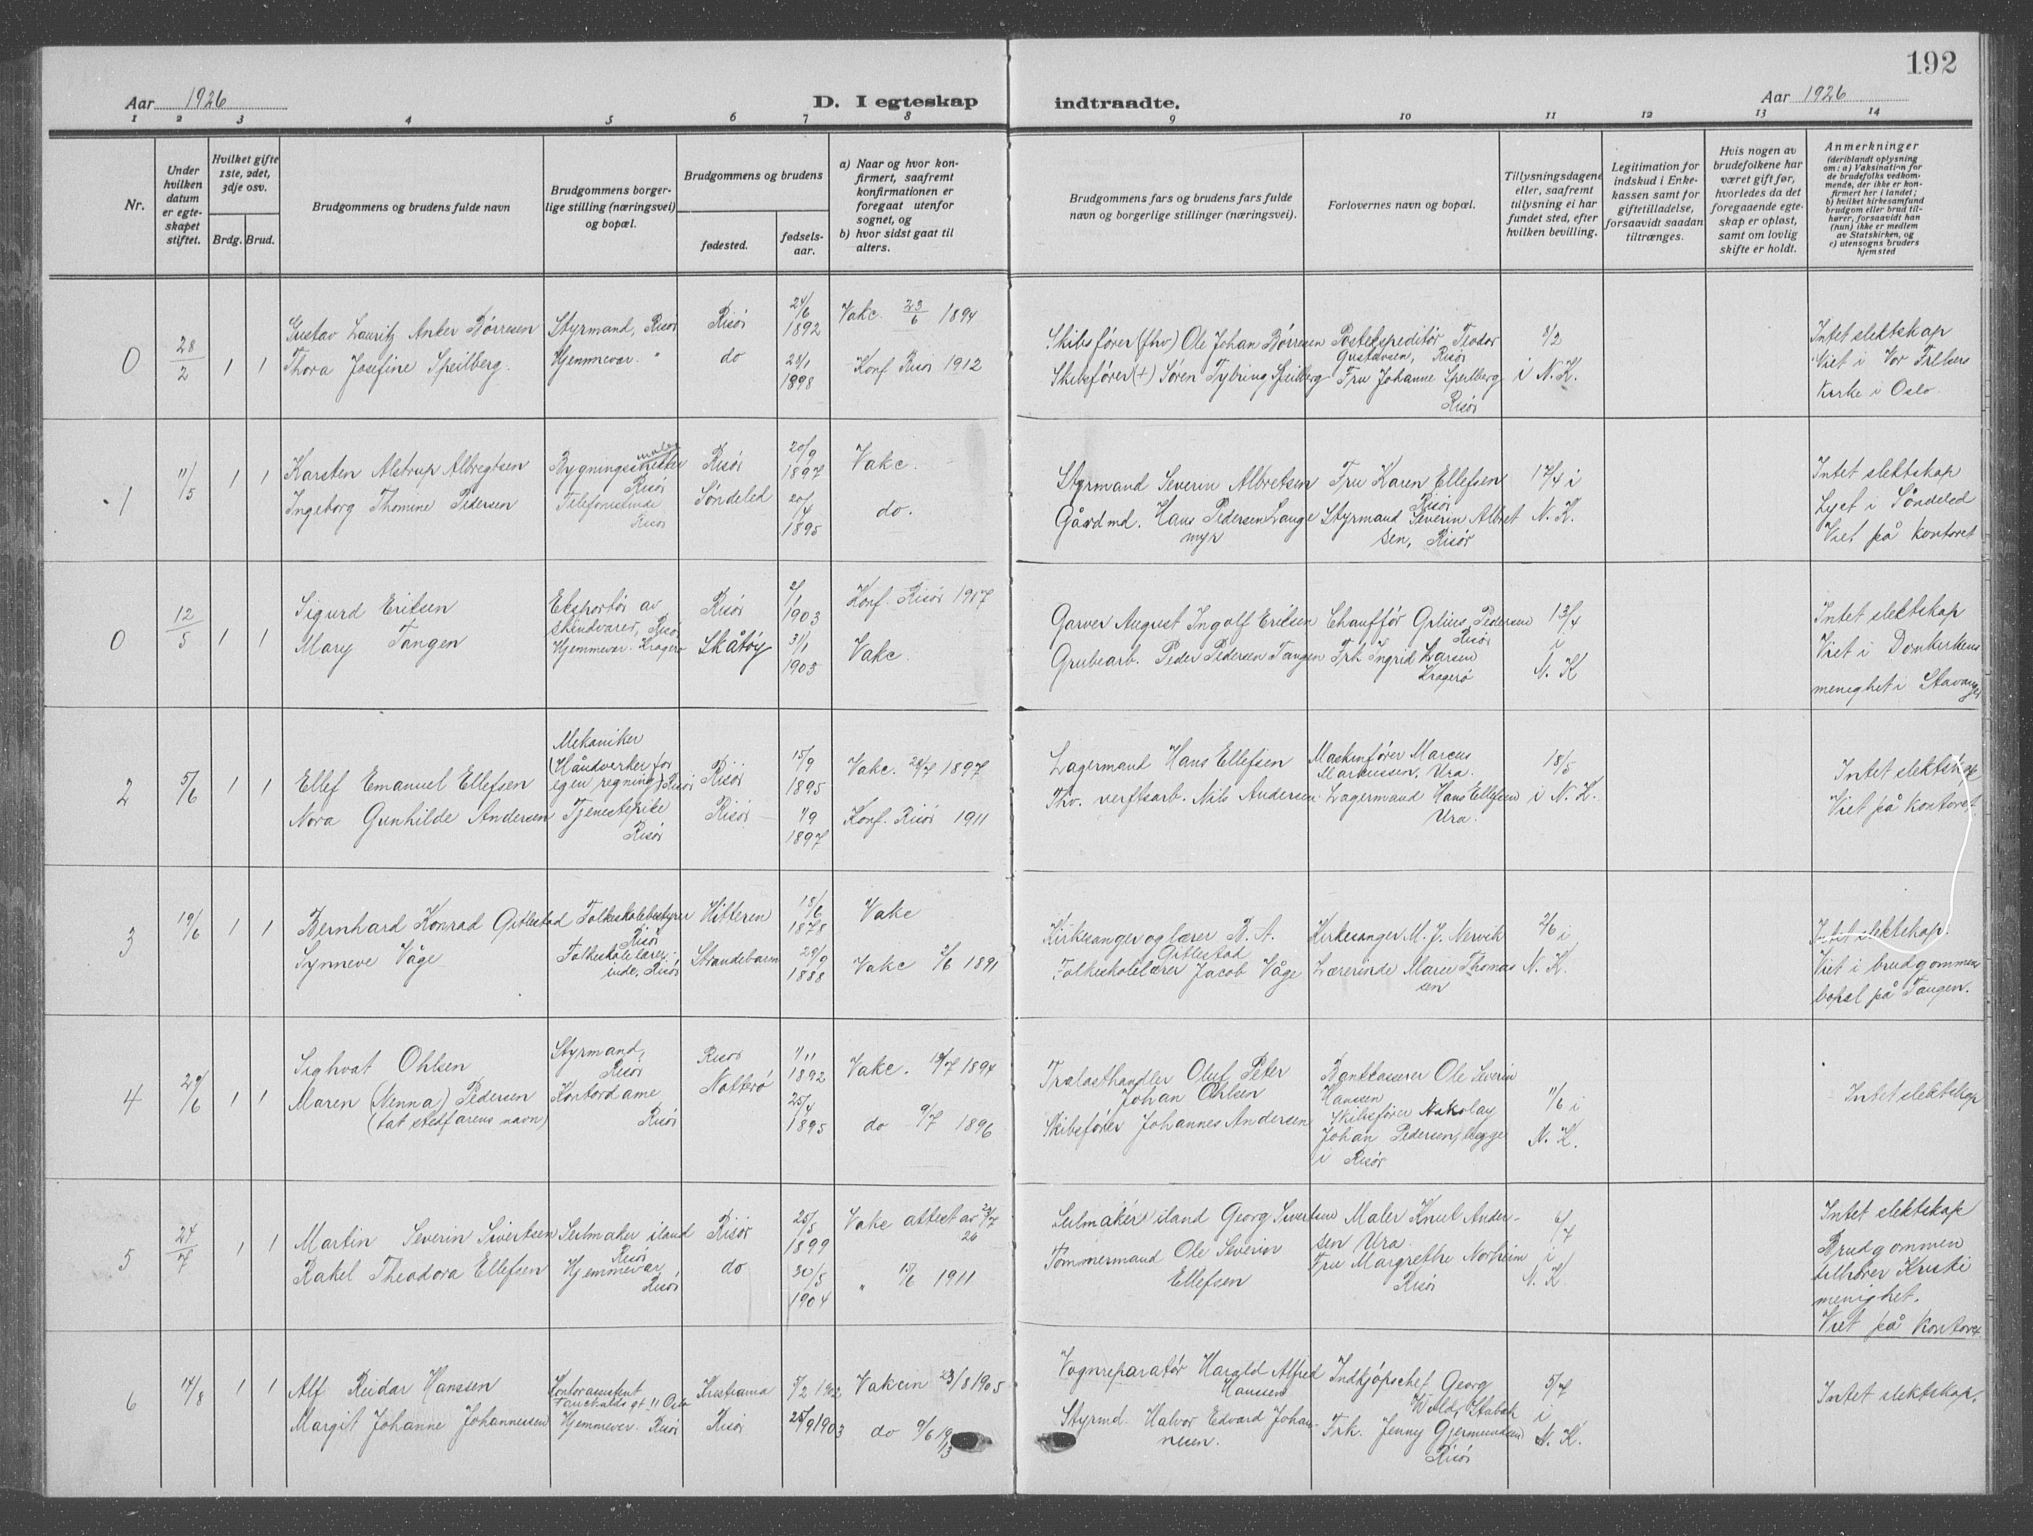 192
Aar 1926
D. I egteskap
indtraadte.
Aar 1926
1 2 3 4 5 6 7 8 9 10 11 12 13 14
Nr.
Under hvilken datum er egteskapet stiftet.
Hvilket gifte 1ste, 2det, 3dje osv.
Brdg. Brud.
Brudgommens og brudens fulde navn
Brudgommens borgerlige stilling (næringsvei) og bopæl.
Brudgommens og brudens
fødested.
fødselsaar.
a) Naar og hvor konfirmert, saafremt konfirmationen er foregaat utenfor sognet, og
b) hvor sidst gaat til alters.
Brudgommens fars og brudens fars fulde navn og borgerlige stillinger (næringsvei).
Forlovernes navn og bopæl.
Tillysningsdagene eller, saafremt tillysning ei har fundet sted, efter hvilken bevilling.
Legitimation for indskud i Enkekassen samt for giftetilladelse, forsaavidt saadan tiltrænges.
Hvis nogen av brudefolkene har været gift før, hvorledes da det foregaaende egteskap er opløst, samt om lovlig skifte er holdt.
Anmerkninger
(deriblandt oplysning om: a) Vaksination for de brudefolks vedkommende, der ikke er konfirmert her i landet; b) hvilket kirkesamfund brudgom eller brud tilhører, forsaavidt han (hun) ikke er medlem av Statskirken, og c) utensogns bruders hjemsted
0 28/2 1 1
Gustav Lauritz Anker Børresen
Thora Josefine Speilberg.
Styrmand, Risør
Hjemmevær. "
Risør
do
24/6 1892
23/1 1898
Vakc. 23/6 1894
Konf. Risør 1912
Skibsfører (fhv) Ole Johan Børresen
Skibsfører (+) Søren Tybring Speilberg
Postekspeditør Teodor Gustavsen, Risør
Fru Johanne Speilberg Risør
3/2
i N. K.
Intet slektskap
Viet i Vor Frelsers
Kirke i Oslo.
1 11/5 1 1
Karsten Alstrup Albregtsen
Ingeborg Thomine Pedersen
Bygnings maler
Risør
Telefonistinde
Risør
Risør
Søndeled
20/9 1897
20/4 1895
Vakc.
do.
Styrmand Severin Albretsen
Gårdmd. Hans Pedersen Lange
myr
Fru Karen Ellefsen
Risør
Styrmand Severin Albret
sen, Risør
17/4 i
N. K.
Intet slektskap
Lyst i Søndeled
Viet på kontoret
0 12/5 1 1
Sigurd Eriksen
Mary Tangen
Eksportør av
skindvarer, Risør
Hjemmevær. Kragerø
Risør
Skåtøy
2/1 1903
31/1 1903
Konf. Risør 1917
Vakc.
Garver August Ingolf Eriksen
Grubearb. Peder Pedersen Tangen
Chauffør Pedersen
Risør
Frk Ingrid Larsen
Kragerø
13/4
i
N. K
Intet slektskap
Viet i Domkirkens
menighet i Stavanger
2 5/6 1 1
Ellef Emanuel Ellefsen
Nora Gunhilde Andersen
Mekaniker
(Håndverker for
egen regning) Risør
Tjenestepike
Risør
Risør
Risør
15/9 1895
1/9 1897
Vakc. 28/7 1897
Konf. Risør 1911
Lagermand Hans Ellefsen
Fhv. verftsarb. Nils Andersen
Maskinfører Marcus
Markussen, Ura.
Lagermand Hans Ellefsen
Ura.
18/5
i N. K.
Intet slektskap
Viet på kontoret.
3 19/6 1 1
Bernhard Konrad Gitlestad
Synneve Våge
Folkeskolebestyrer
Risør
Folkeskolelærer-
inde, Risør
Hitteren
Strandebarm
18/6 1878
29/9 1888
Vakc
Vakc 3/6 1891
Kirkesanger og lærer B. A.
Gitlestad
Folkeskolelærer Jacob Våge
Kirkesanger M. J. Nervik
Lærerinde Marie Thomas
sen
2/6 i
N. K.
Intet slektskap.
Viet i brudgommens
bopæl på Tangen.
4 29/6 1 1
Sighvat Ohlsen
Maren (Nenna) Pedersen
(tat stedfarens navn)
Styrmand,
Risør
Kontordame
Risør
Risør
Nøtterø
1/11 1892
25/4 1895
Vakc. 19/7 1894
do 9/7 1896
Trælasthandler Oluf Peter
Johan Ohlsen
Skibsfører Johannes Andersen
Bankkasserer Ole Severin
Hanssen
Skibsfører Nikolay
Johan Pedersen, begge
i Risør
11/6 i
N. K.
Intet slektskap
5 24/7 1 1
Martin Severin Sivertsen
Rakel Theodora Ellefsen
Seilmaker iland
Risør
Hjemmevær
Risør
Risør
do
25/5 1899
20/5 1904
Vakc attest av 23/7 26
" 13/6 1911
Seilmaker iland Georg Sivertsen
Tømmermand Ole Severin
Ellefsen
Maler Knut Ander-
sen Ura.
Fru Margrethe Norheim
Risør
6/7
i
N. K.
Intet slektskap
Brudgommen
tilhører Kristi
menighet.
Viet på kontoret
6 14/8 1 1
Alf Reidar Hanssen
Margit Johanne Johannessen
Kontorassistent
Fauchaldsgt. 11 Oslo
Hjemmevær. Risør
Kristiania
Risør
5/2 1902
25/9 1903
Vakcin 23/8 1905
do 9/6 19
13
Vognreparatør Harald Alfred
Hanssen
Styrmd. Halvor Edvard Johan-
nesen.
Indkjøpschef Georg
Wold, Stabæk
Frk. Jenny Gjermundsen
Risør
5/7
i
N. K.
Intet slektskap.